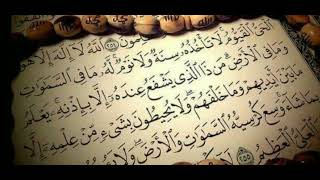 اللَّهُ لَا إِلَٰهَ إِلَّا هُوَ
الْحَىُّ الْقَيُّومُ لَا تَأْخُذُهُ سِنَةٌ وَلَا نَوْمٌ لَّهُ مَا فِى السَّمَاوَاتِ
وَمَا فِى الْأَرْضِ مَن ذَا الَّذِى يَشْفَعُ عِندَهُ إِلَّا بِإِذْنِهِ يَعْلَمُ
مَا بَيْنَ أَيْدِيهِمْ وَمَا خَلْفَهُمْ وَلَا يُحِيطُونَ بِشَىْءٍ مِّنْ عِلْمِهِ إِلَّا
بِمَا شَاءَ وَسِعَ كُرْسِيُّهُ السَّمَاوَاتِ وَالْأَرْضَ وَلَا
الْعَلِىُّ الْعَظِيمُ ٢٥٥ لَا